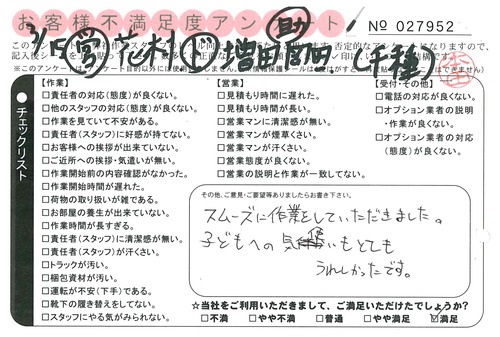 お客様不満足度アンケート
No 027952
3/15 営 花村 助 増田 関内 (千種)
チェックリスト
【作業】
□責任者の対応(態度)が良くない。
□他のスタッフの対応(態度)が良くない。
□作業を見ていて不安がある。
□責任者(スタッフ)に好感が持てない。
□お客様への挨拶が出来ていない。
□ご近所への挨拶・気遣いが無い。
□作業開始前の内容確認がなかった。
□作業開始時間が遅れた。
□荷物の取り扱いが雑である。
□お部屋の養生が出来ていない。
□作業時間が長すぎる。
□責任者(スタッフ)に清潔感が無い。
□責任者(スタッフ)が汗くさい。
□トラックが汚い。
□梱包資材が汚い。
□運転が不安(下手)である。
□靴下の履き替えをしてない。
□スタッフにやる気がみられない。
【営業】
□見積もり時間に遅れた。
□見積もり時間が長い。
□営業マンに清潔感が無い。
□営業マンが煙草くさい。
□営業マンが汗くさい。
□営業態度が良くない。
□営業の説明と作業が一致してない。
【受付・その他】
□電話の対応が良くない。
□オプション業者の説明・作業が良くない。
□オプション業者の対応(態度)が良くない。
その他、ご意見・ご要望等ありましたらお書き下さい。
スムーズに作業をしていただきました。
子どもへの気遣いもとても
うれしかったです。
☆当社をご利用いただきまして、ご満足いただけたでしょうか?
□不満 □やや不満 □普通 □やや満足 ☑満足